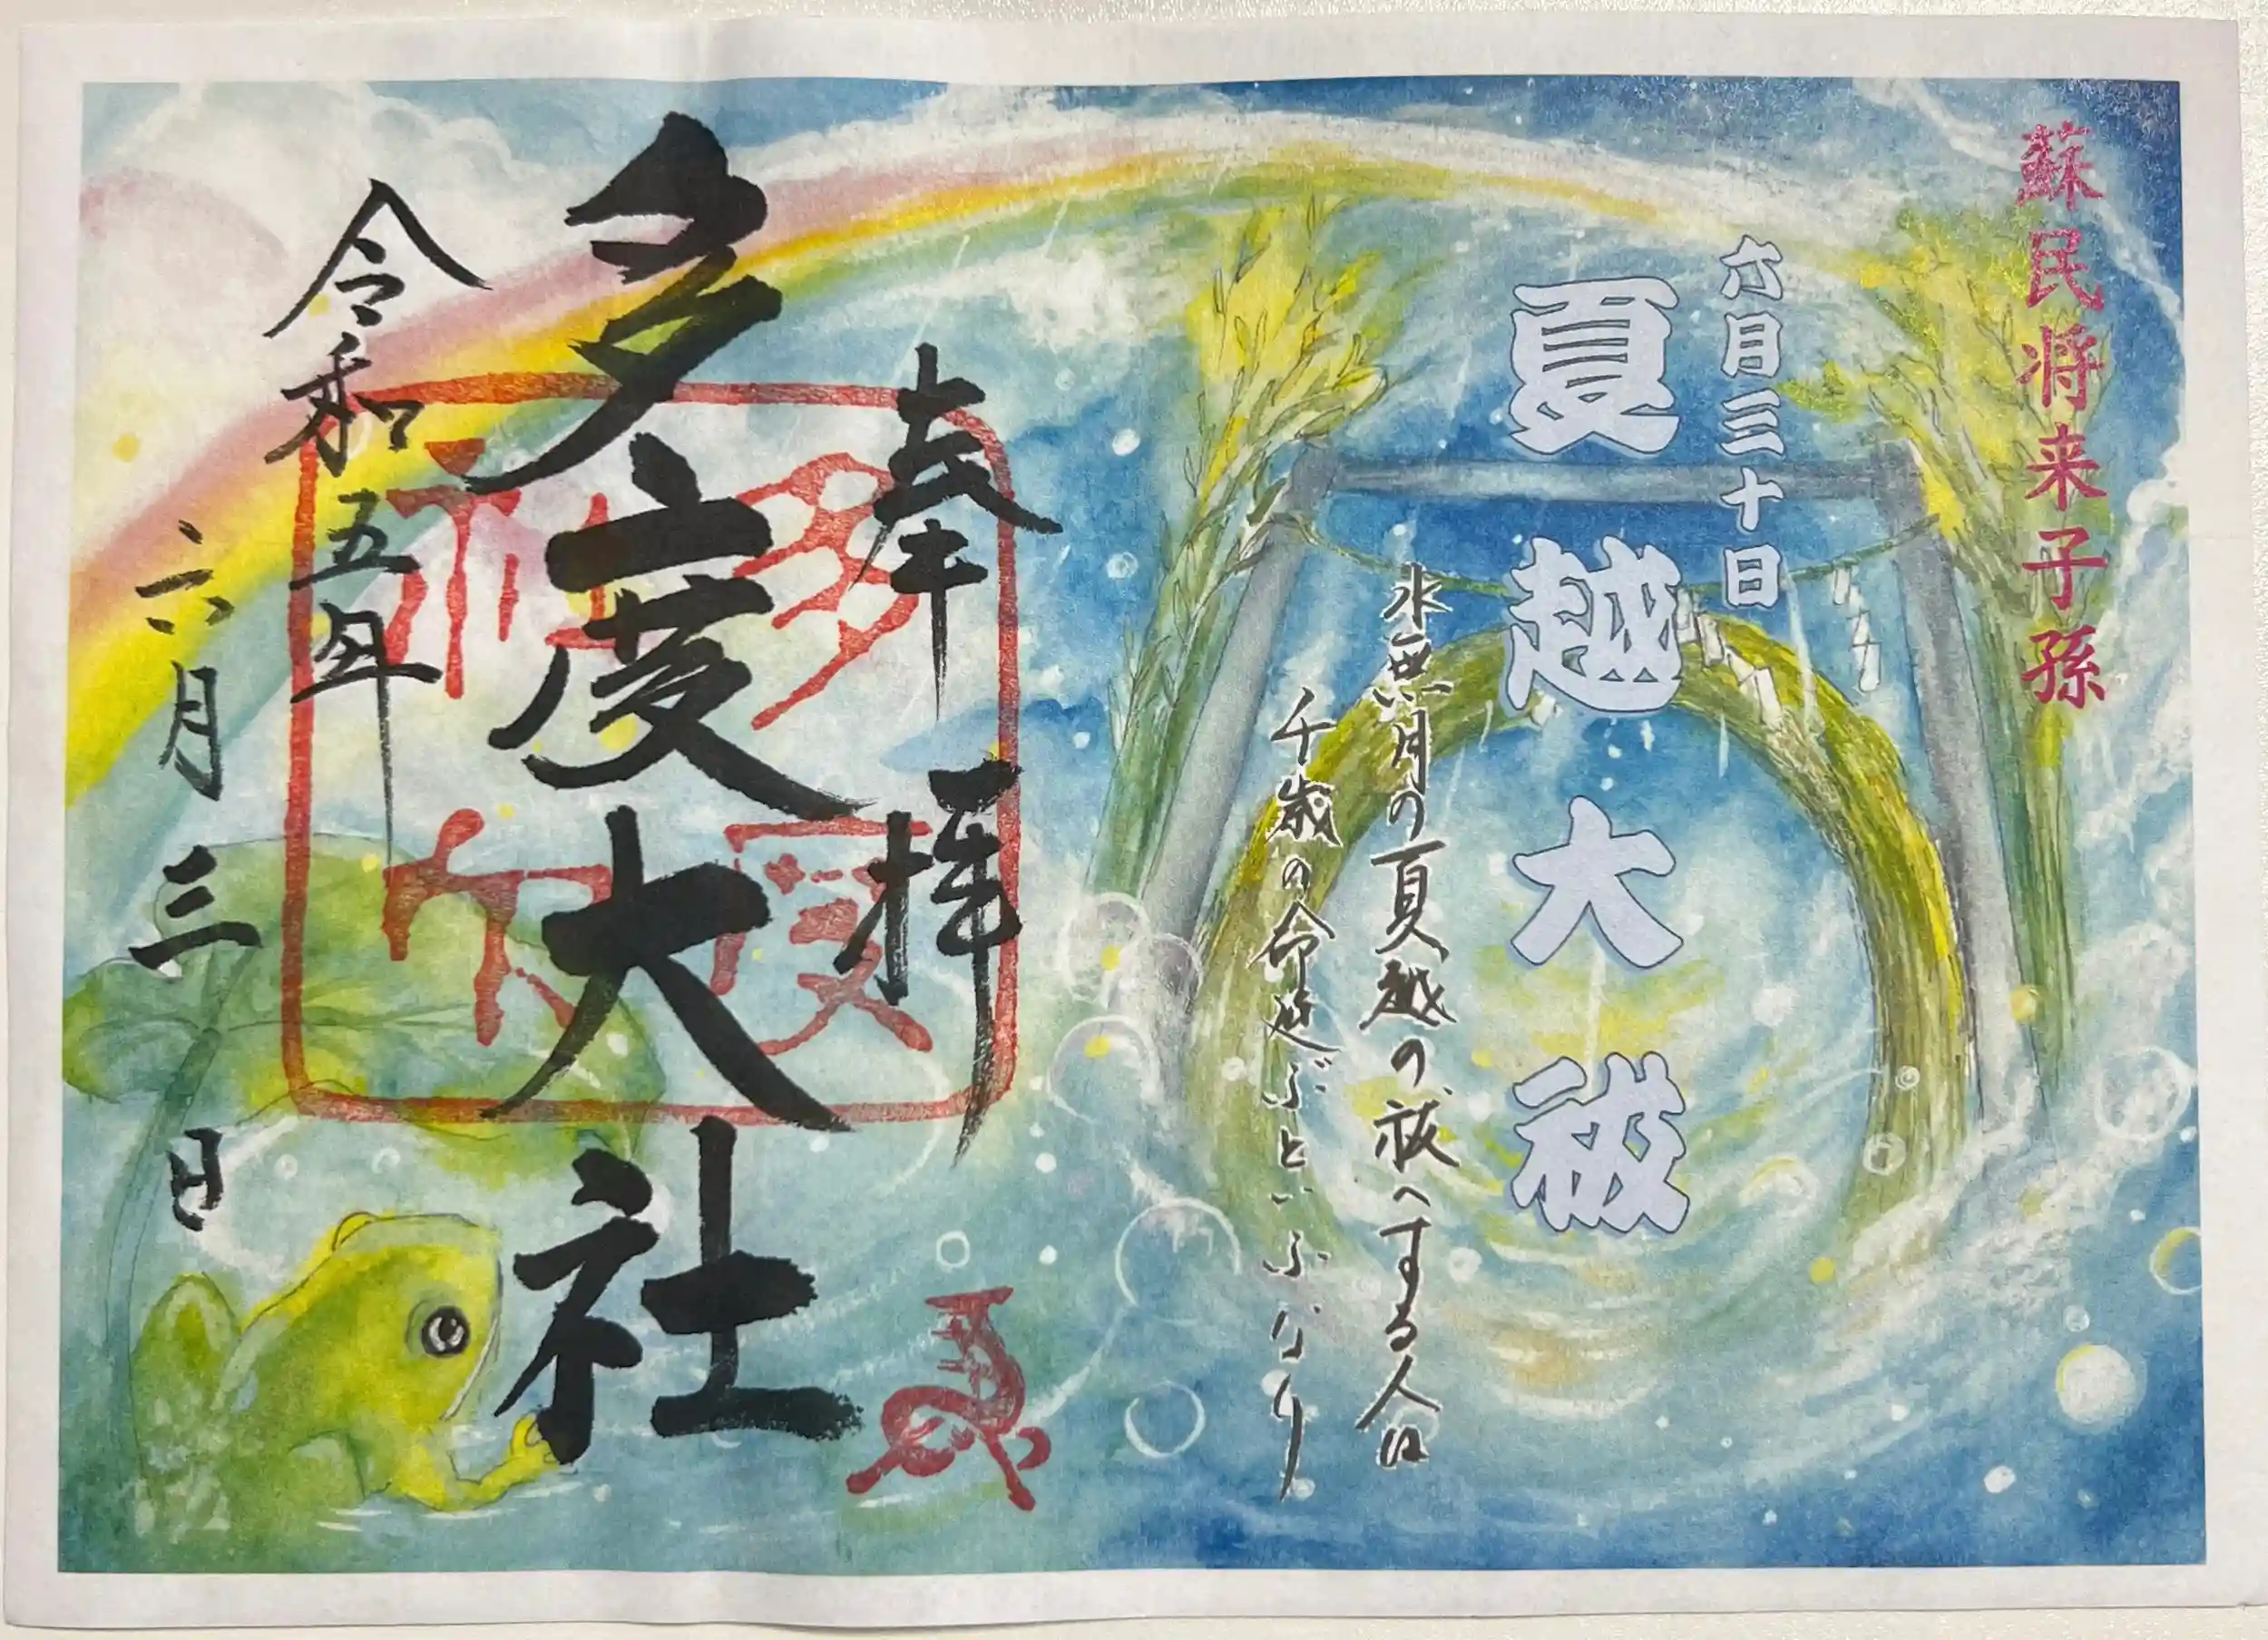 蘇民将来子孫
六月三十日
夏越大祓
水無月の夏越の祓へする人は
千歳の命延ぶといふなり
奉拝
多度大社
令和五年
六月三日
多度
神社
夏